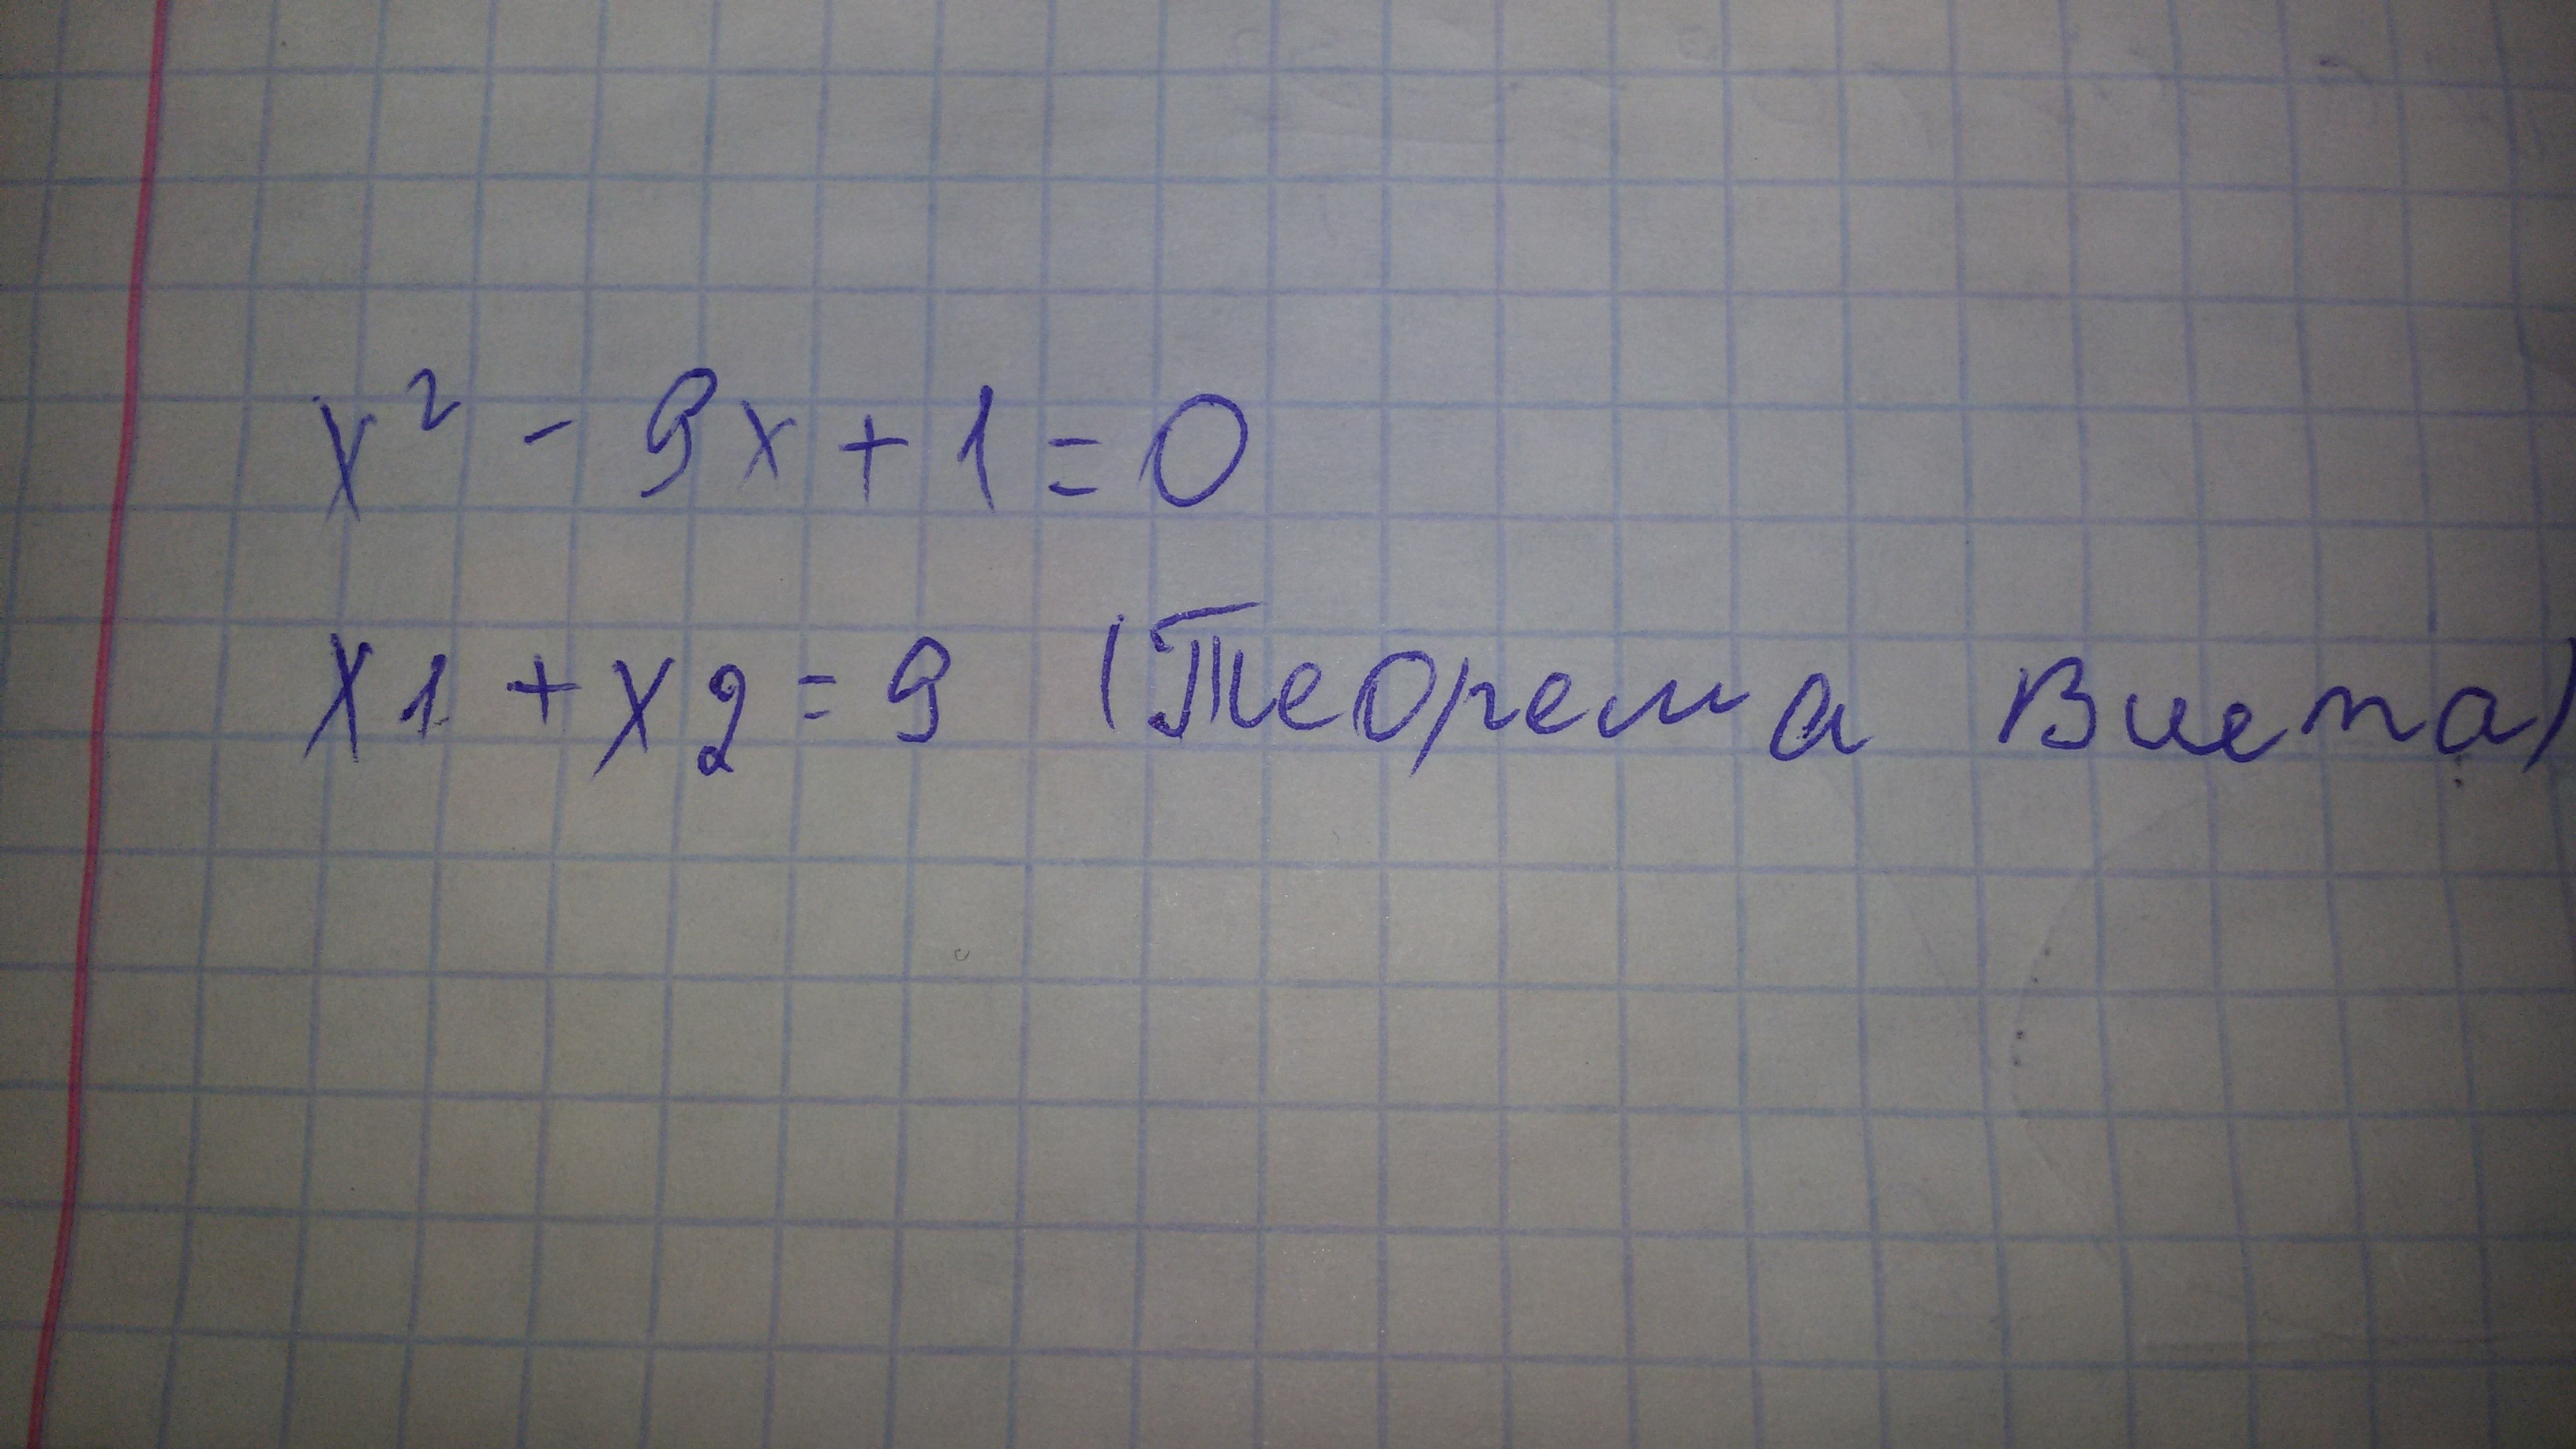 x² - 9x + 1 = 0
x1 + x2 = 9 (Теорема Виета)